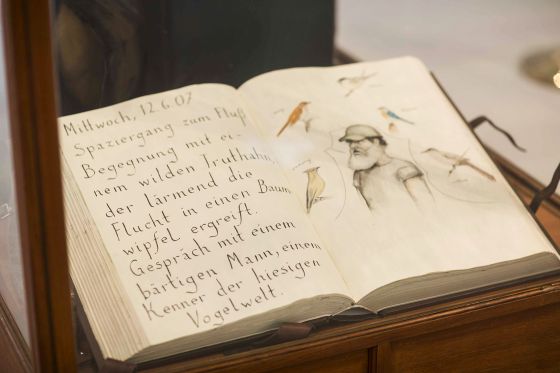 Mittwoch, 12.6.07
Spaziergang zum Fluß
Begegnung mit ei-
nem wilden Truthahn,
der lärmend die
Flucht in einen Baum-
wipfel ergreift.
Gespräch mit einem
bärtigen Mann, einem
Kenner der hiesigen
Vogelwelt.